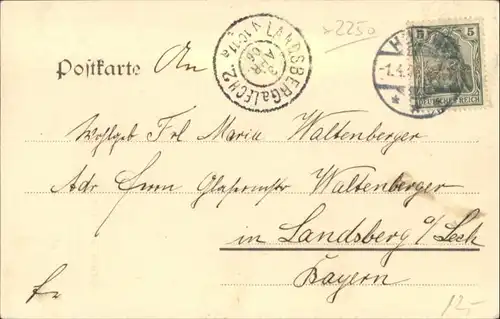 x2250
LANDSBERG a. LECH 2.
3 APR 06
V. 10-11
5 5
DEUTSCHES REICH
1.4.
Postkarte An
Wohlgeb Frl Maria Waltenberger
Adr Herrn Glasermstr Waltenberger
in Landsberg a/Lech
Bayern
12,-